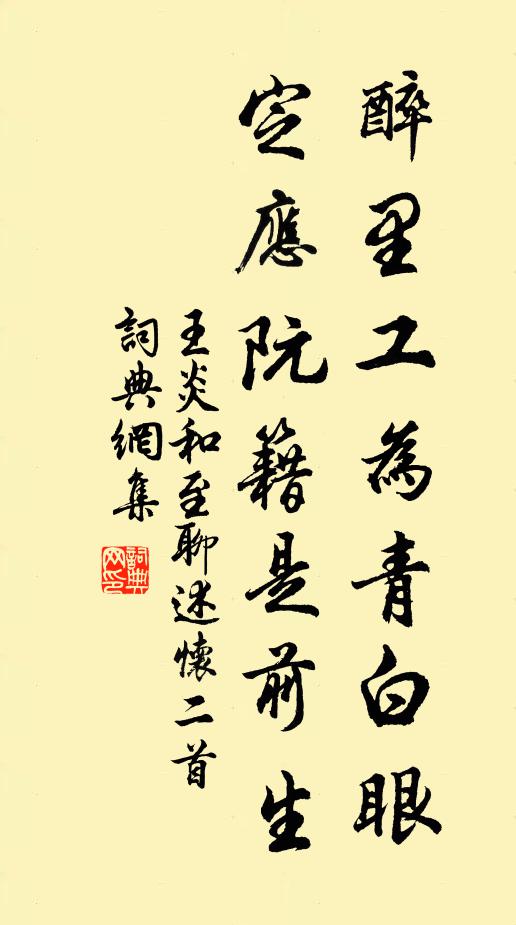 醉里工為青白眼
定應阮籍是前生
王炎和至聊述懷二首
詞典網集
詞典网印